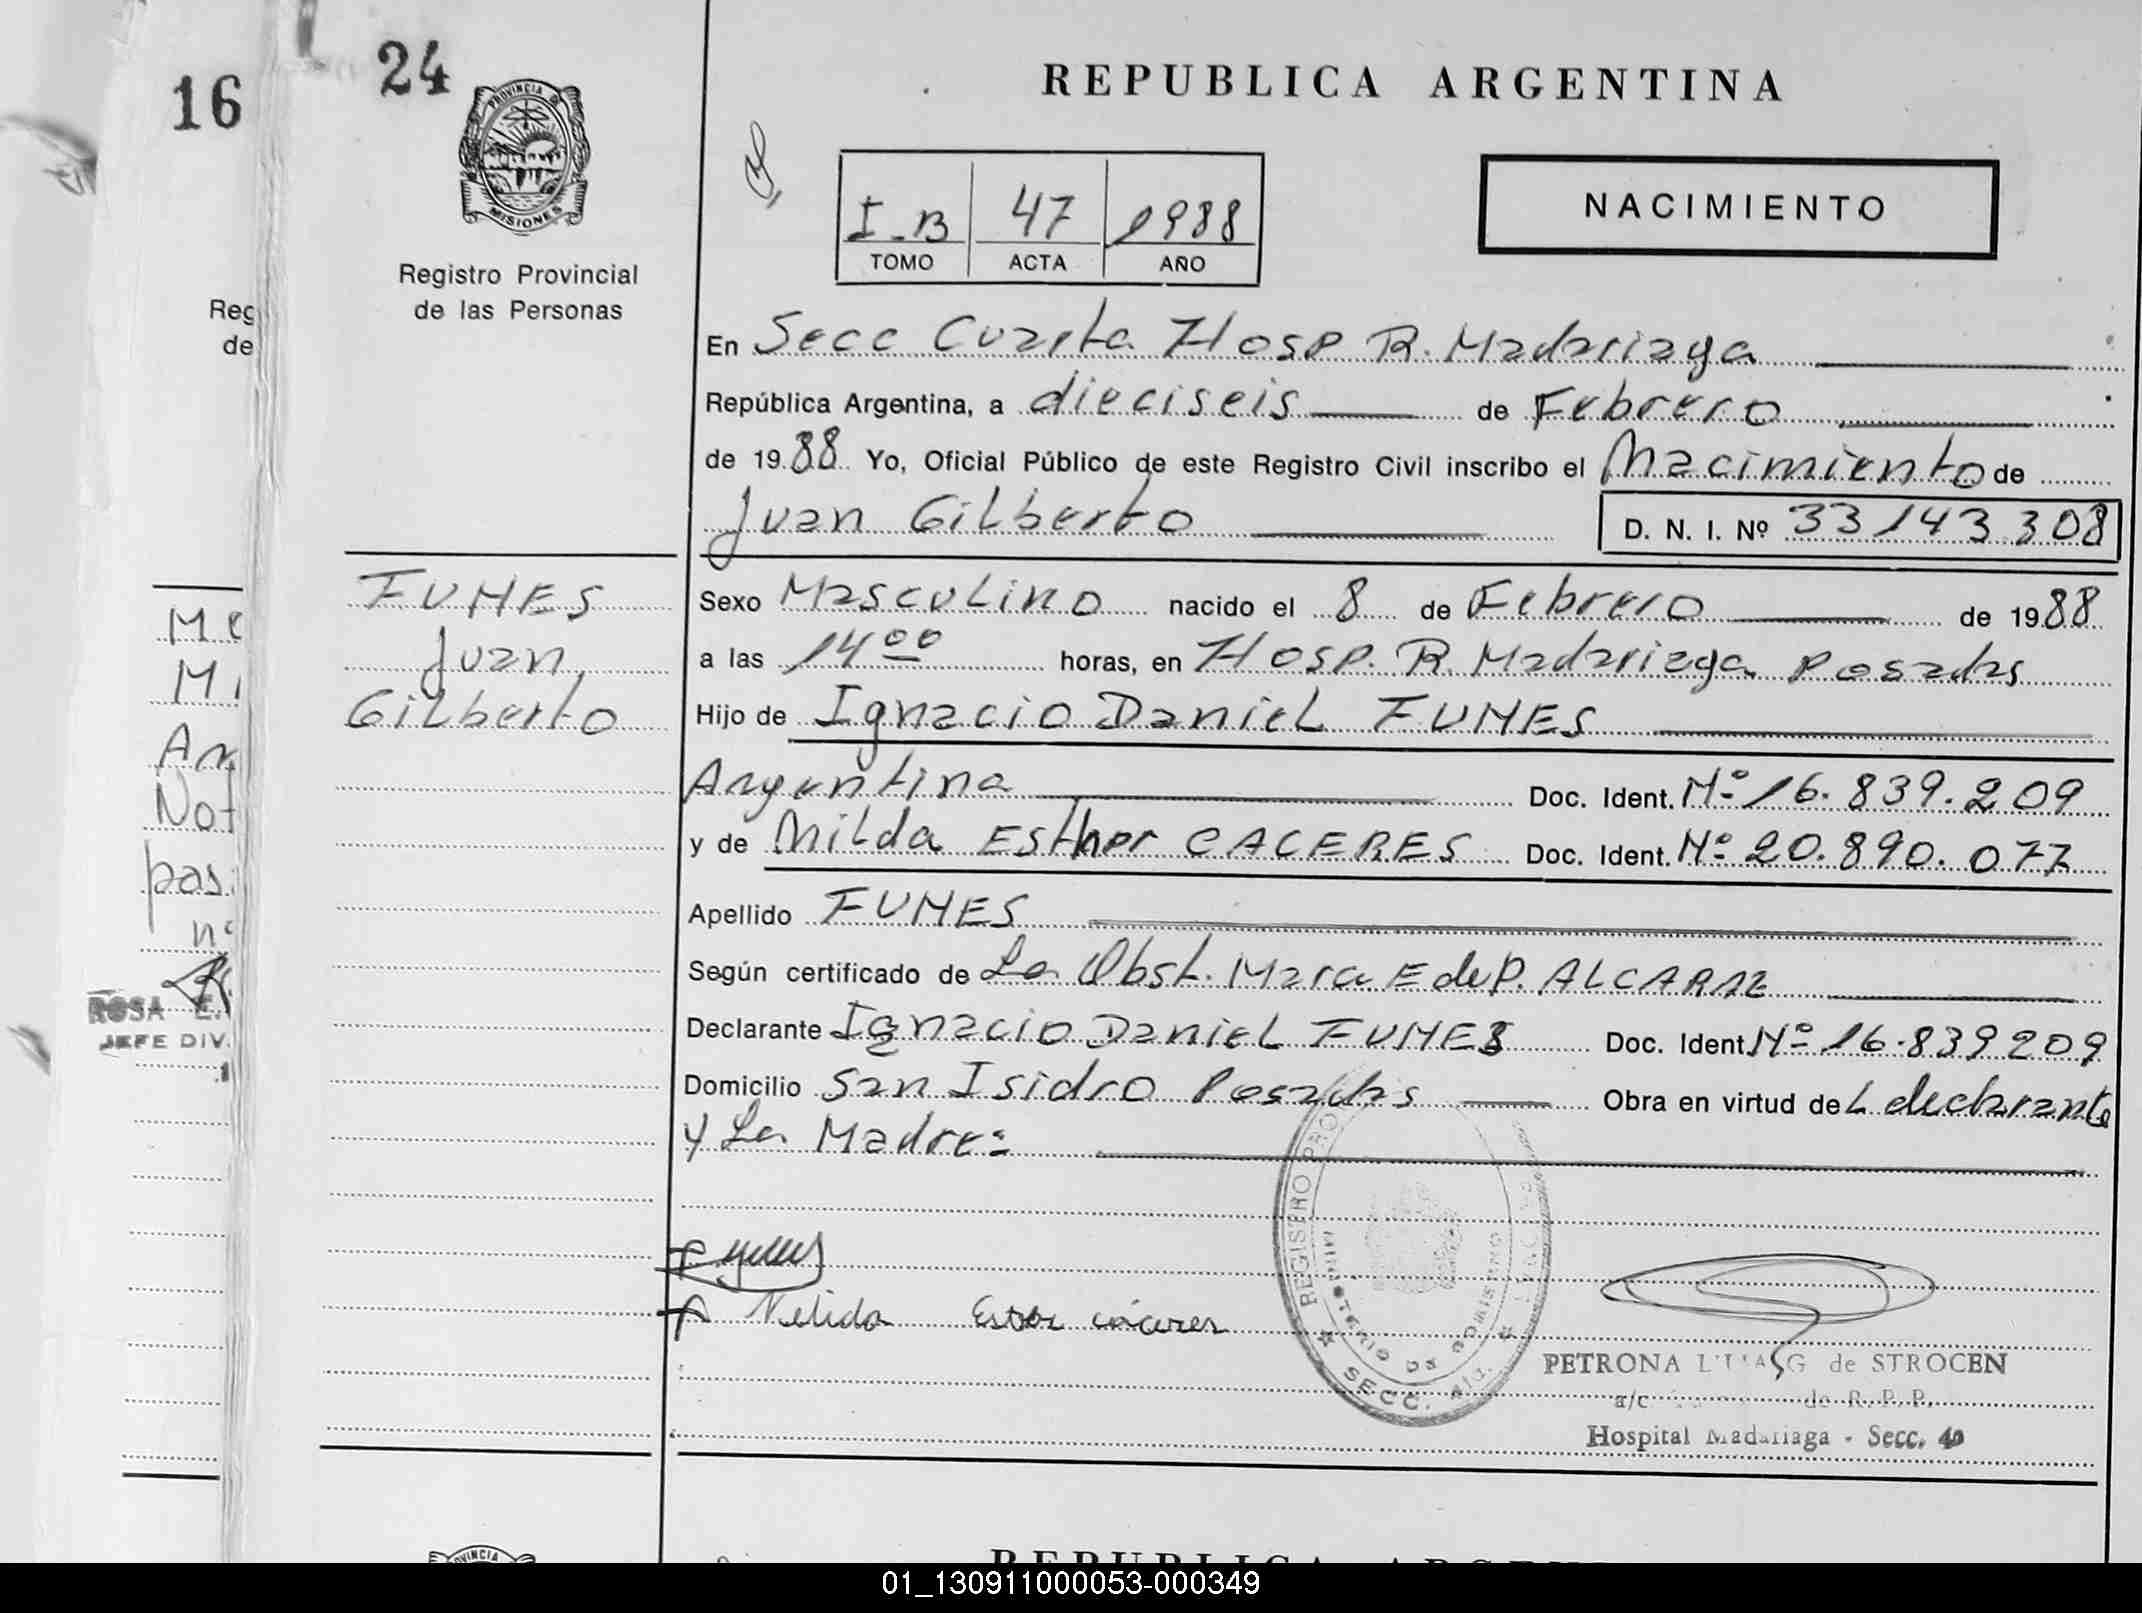 16
24
REPUBLICA ARGENTINA
PROVINCIA DE
MISIONES
I-B 47 1988
TOMO ACTA AÑO
NACIMIENTO
Registro Provincial
de las Personas
Reg
de
En Secc Cuarta Hosp R. Madariaga
República Argentina, a dieciseis de Febrero
de 1988 Yo, Oficial Público de este Registro Civil inscribo el Nacimiento de
Juan Gilberto D. N. I. Nº 33143308
FUNES
Juan
Gilberto
Sexo Masculino nacido el 8 de Febrero de 1988
a las 14 00 horas, en Hosp. R. Madariaga Posadas
Hijo de Ignacio Daniel FUNES
Argentina Doc. Ident. Nº 16.839.209
y de Nilda Esther CACERES Doc. Ident. Nº 20.890.077
Apellido FUNES
Según certificado de La Obst. Mara E de P. ALCARAZ
Declarante Ignacio Daniel FUNES Doc. Ident Nº 16.839209
Domicilio San Isidro Posadas Obra en virtud del declarante
y La Madre:
Nelida Ester cáceres
REGISTRO PRO
MINISTERIO DE
SECC.
PETRONA G de STROCEN
a/c de R. P. P.
Hospital Madariaga - Secc. 4a
ROSA E.
JEFE DIV.
REPUBLICA
01_130911000053-000349